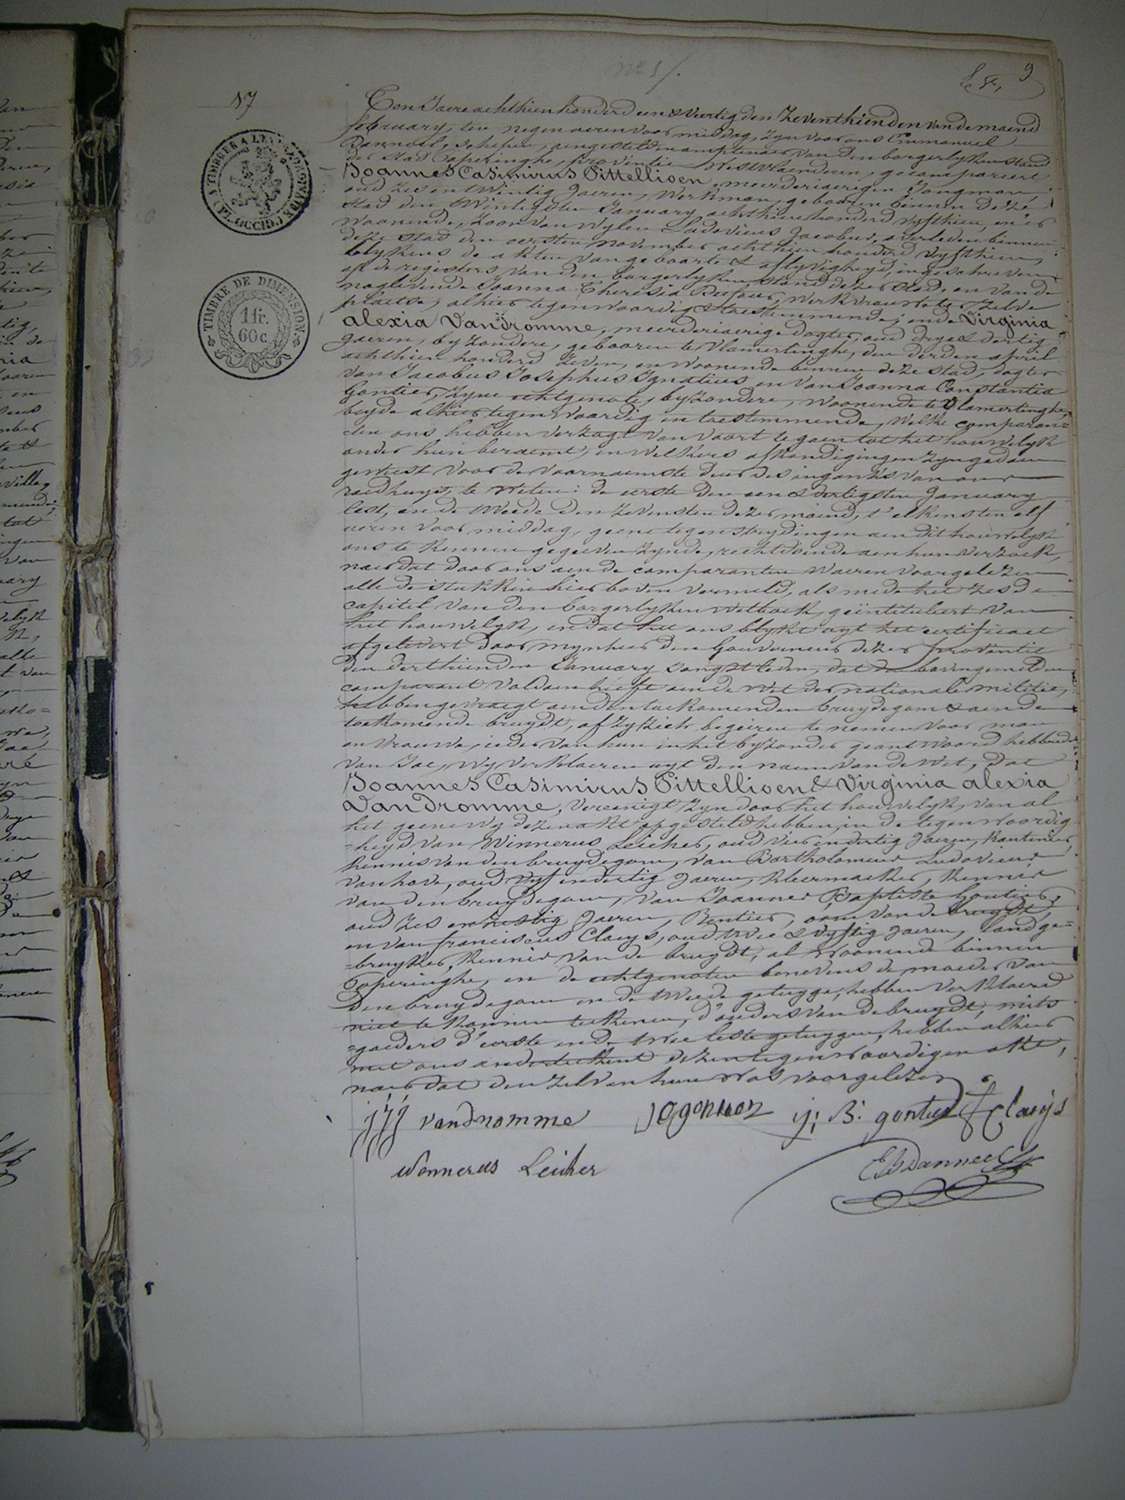 9
17
Ten Jaere achthien honderd een & veertig den zeventhienden van de maend
february, ten negen ueren voormiddag, zyn voor ons Emmanuel
Danneel, Schepen, aengestelden amptenaer van den borgerlyken stand
der stad Poperinghe, provintie Westvlaenderen, gecompareert
Joannes Casimirus Pittellioen, meerderjaerigen Jongman,
oud zes en twintig Jaeren, Werkman, gebooren binnen deze
stad den twintigsten January achthien honderd vyfthien, en er
woonende, zoon van wylen Ludovicus Jacobus, overleden binnen
deze stad den eersten November achthien honderd vyfthien,
blykens de akten van geboorte & aflyvigheyd, ingeschreven
op de registers van den borgerlyken stand dezer stad, en van de
naglevende Joanna Theresia, werkvrouwe te zelve
plaetse, alhier tegenwoordig & toestemmende; ende Virginia
Alexia Vandromme, meerderjaerige dogter, oud drye & dertig
Jaeren, byzondere, gebooren te Vlamertinghe, den derden april
achthien honderd zeven, en woonende binnen deze stad, dogter
van Jacobus Josephus Ignatius en van Joanna Constantia
Gontier, zyne echtgenote, byzondere, woonende te Vlamertinghe,
beyde alhier tegenwoordig en toestemmende, Welke comparan-
ten ons hebben verzogt van voort te gaen tot het houwelyk
onder hun beraemt, en welkers afkondigingen zyn gedaen
geweest voor de voornaemste deur des ingank's van ons
raedhuys, te weten: de eerste den een & dertigsten January
lest, en de tweede den zevensten dezer maend, t'elkensten elf
ueren voormiddag, geene tegenstrydingen aen dit houwelyk
ons te kennen gegeven zynde, rechtdoende aen hun verzoek,
naer dat door ons aen de comparanten waeren voorgelezen
alle de stukken hier boven vermeld, als mede het zesde
capitel van den borgerlyken wetboek, geïntituleert van
het houwelyk, en dat het ons blykt uyt het certificaet
afgelevert door mynheer den Gouverneur dezer provintie
den derthienden January langstleden, dat den bovengemelden
comparant voldaen heeft aen de wet der nationale militie,
hebben gevraegt aen den toekomenden bruydegom & aen de
toekomende bruydt, of zy zich begeiren te nemen voor man
en vrouwe, ieder van hun in het byzonder geantwoord hebbende
van Jae, wy verklaeren uyt den naem van de wet, dat
Joannes Casimirus Pittellioen & Virginia Alexia
Vandromme, vereenigt zyn door het houwelyk, van al
het geene wy deze akt opgesteld hebben, in de tegenwoordig
=heyd van Winnerus Leicher, oud vier en dertig Jaeren,
kennis van den bruydegom, van Bartholomeus Ludovicus
Vanhove, oud vyf en dertig Jaeren, kleermaeker, kenner
van den bruydegom, van Joannes Baptiste Gontier,
oud zes en zestig Jaeren, Rentier, oom van de bruydt,
en van franciscus Claeys, oud twee & vyftig Jaeren, landge-
=bruyker, kenner van de bruydt, al woonende binnen
Poperinghe, en de echtgenoten benevens de moeder van
den bruydegom en de tweede getuyge, hebben verklaerd
niet te konnen teekenen, d'ouders van de bruydt, mits-
=gaeders d'eerste en de twee leste getuygen, hebben alhier
met ons onderteekent dezen tegenwoordigen akt,
naer dat den zelven hun was voorgelezen.
jjj vandromme jcgontier j: B: gontier F Claeys
Wennerus Leicher EDanneel
TIMBRE DE DIMENSION.
1 fr.
60 c.